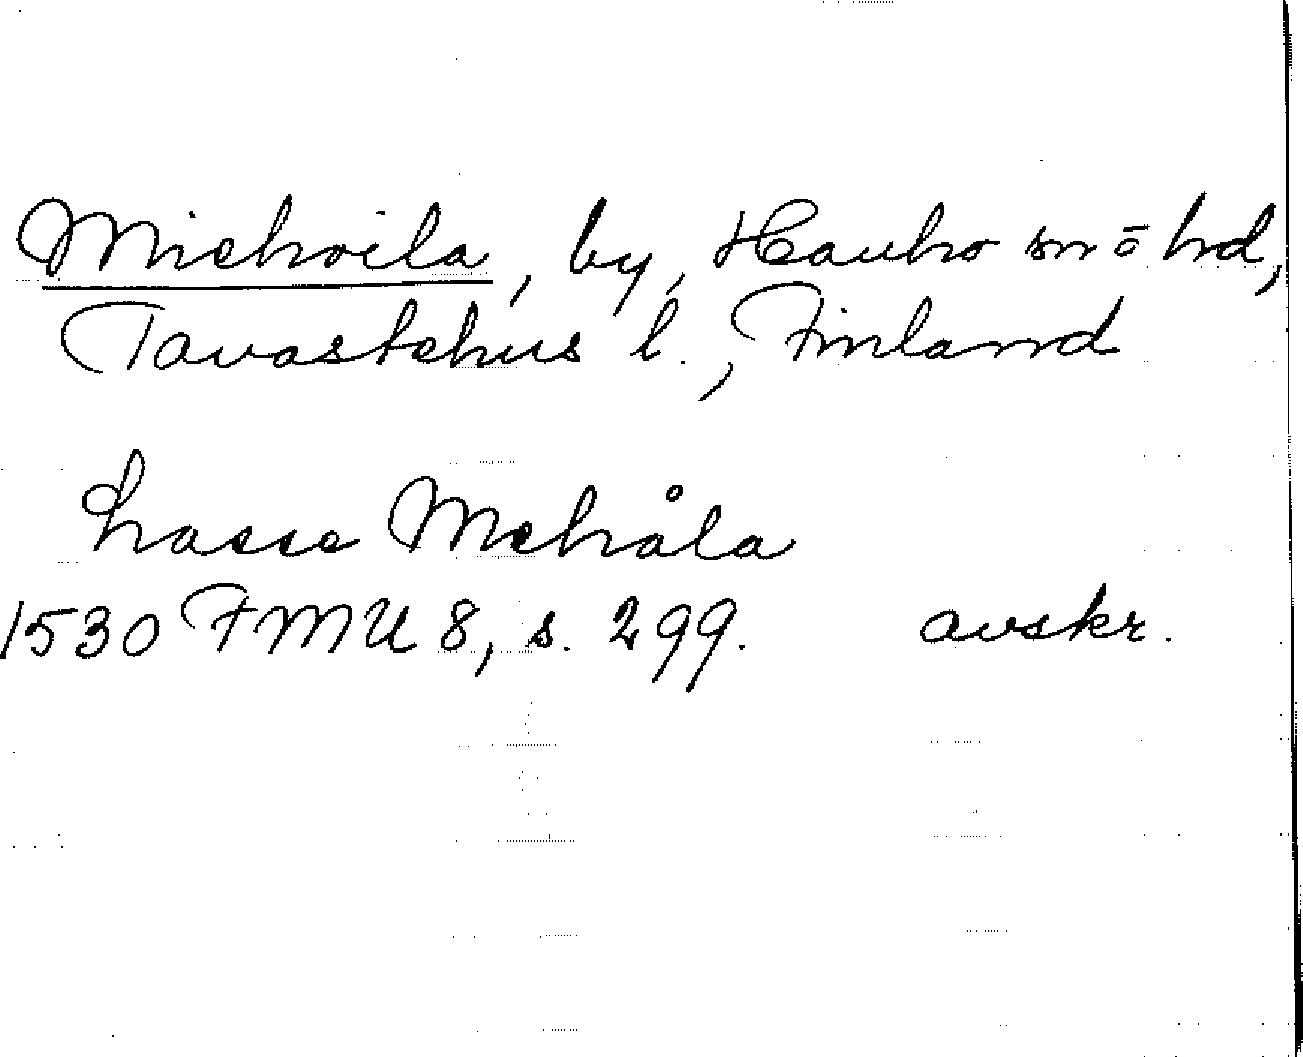 Miehoila, by, Hauho sn ō hd,
Tavastehus l., Finland
Lasse Mehåla
1530 FMU 8, s. 299. avskr.